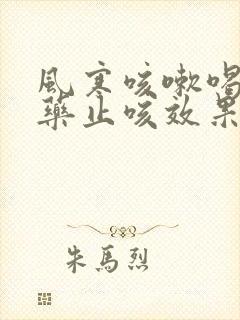 風寒咳嗽喝
藥止咳效果
朱馬烈